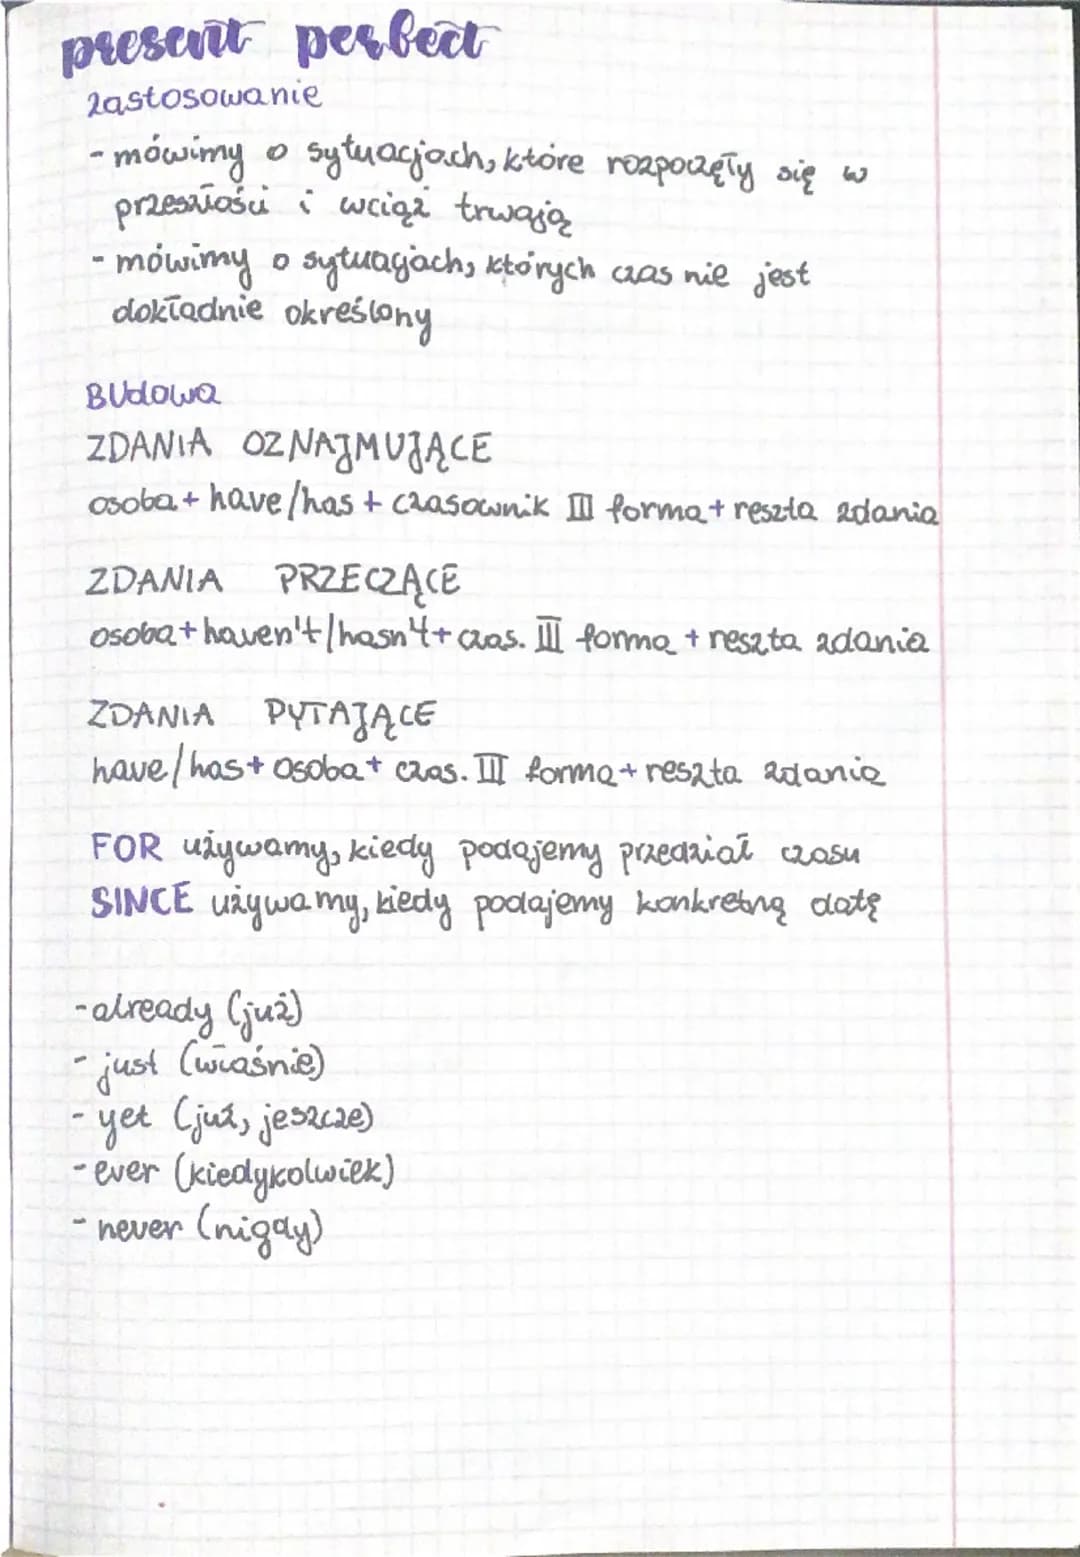 present perfect
zastosowanie
- mówimy o sytuacjach, które rozpoczęły się w
przeszłości i wciąż trwają
- mówimy o sytuacjach, których czas nie jest
dokładnie określony
BUdowa
ZDANIA OZNAJMUJĄCE
osoba + have/has + czasownik III forma + reszta zdania
ZDANIA PRZECZĄCE
osoba + haven't/hasn't + czas. III forma + reszta zdania
ZDANIA PYTAJĄCE
have/has + osoba + czas. III forma + reszta zdania
FOR używamy, kiedy podajemy przedział czasu
SINCE używamy, kiedy podajemy konkretną datę
- already (już)
- just (właśnie)
- yet (już, jeszcze)
- ever (kiedykolwiek)
- never (nigdy)